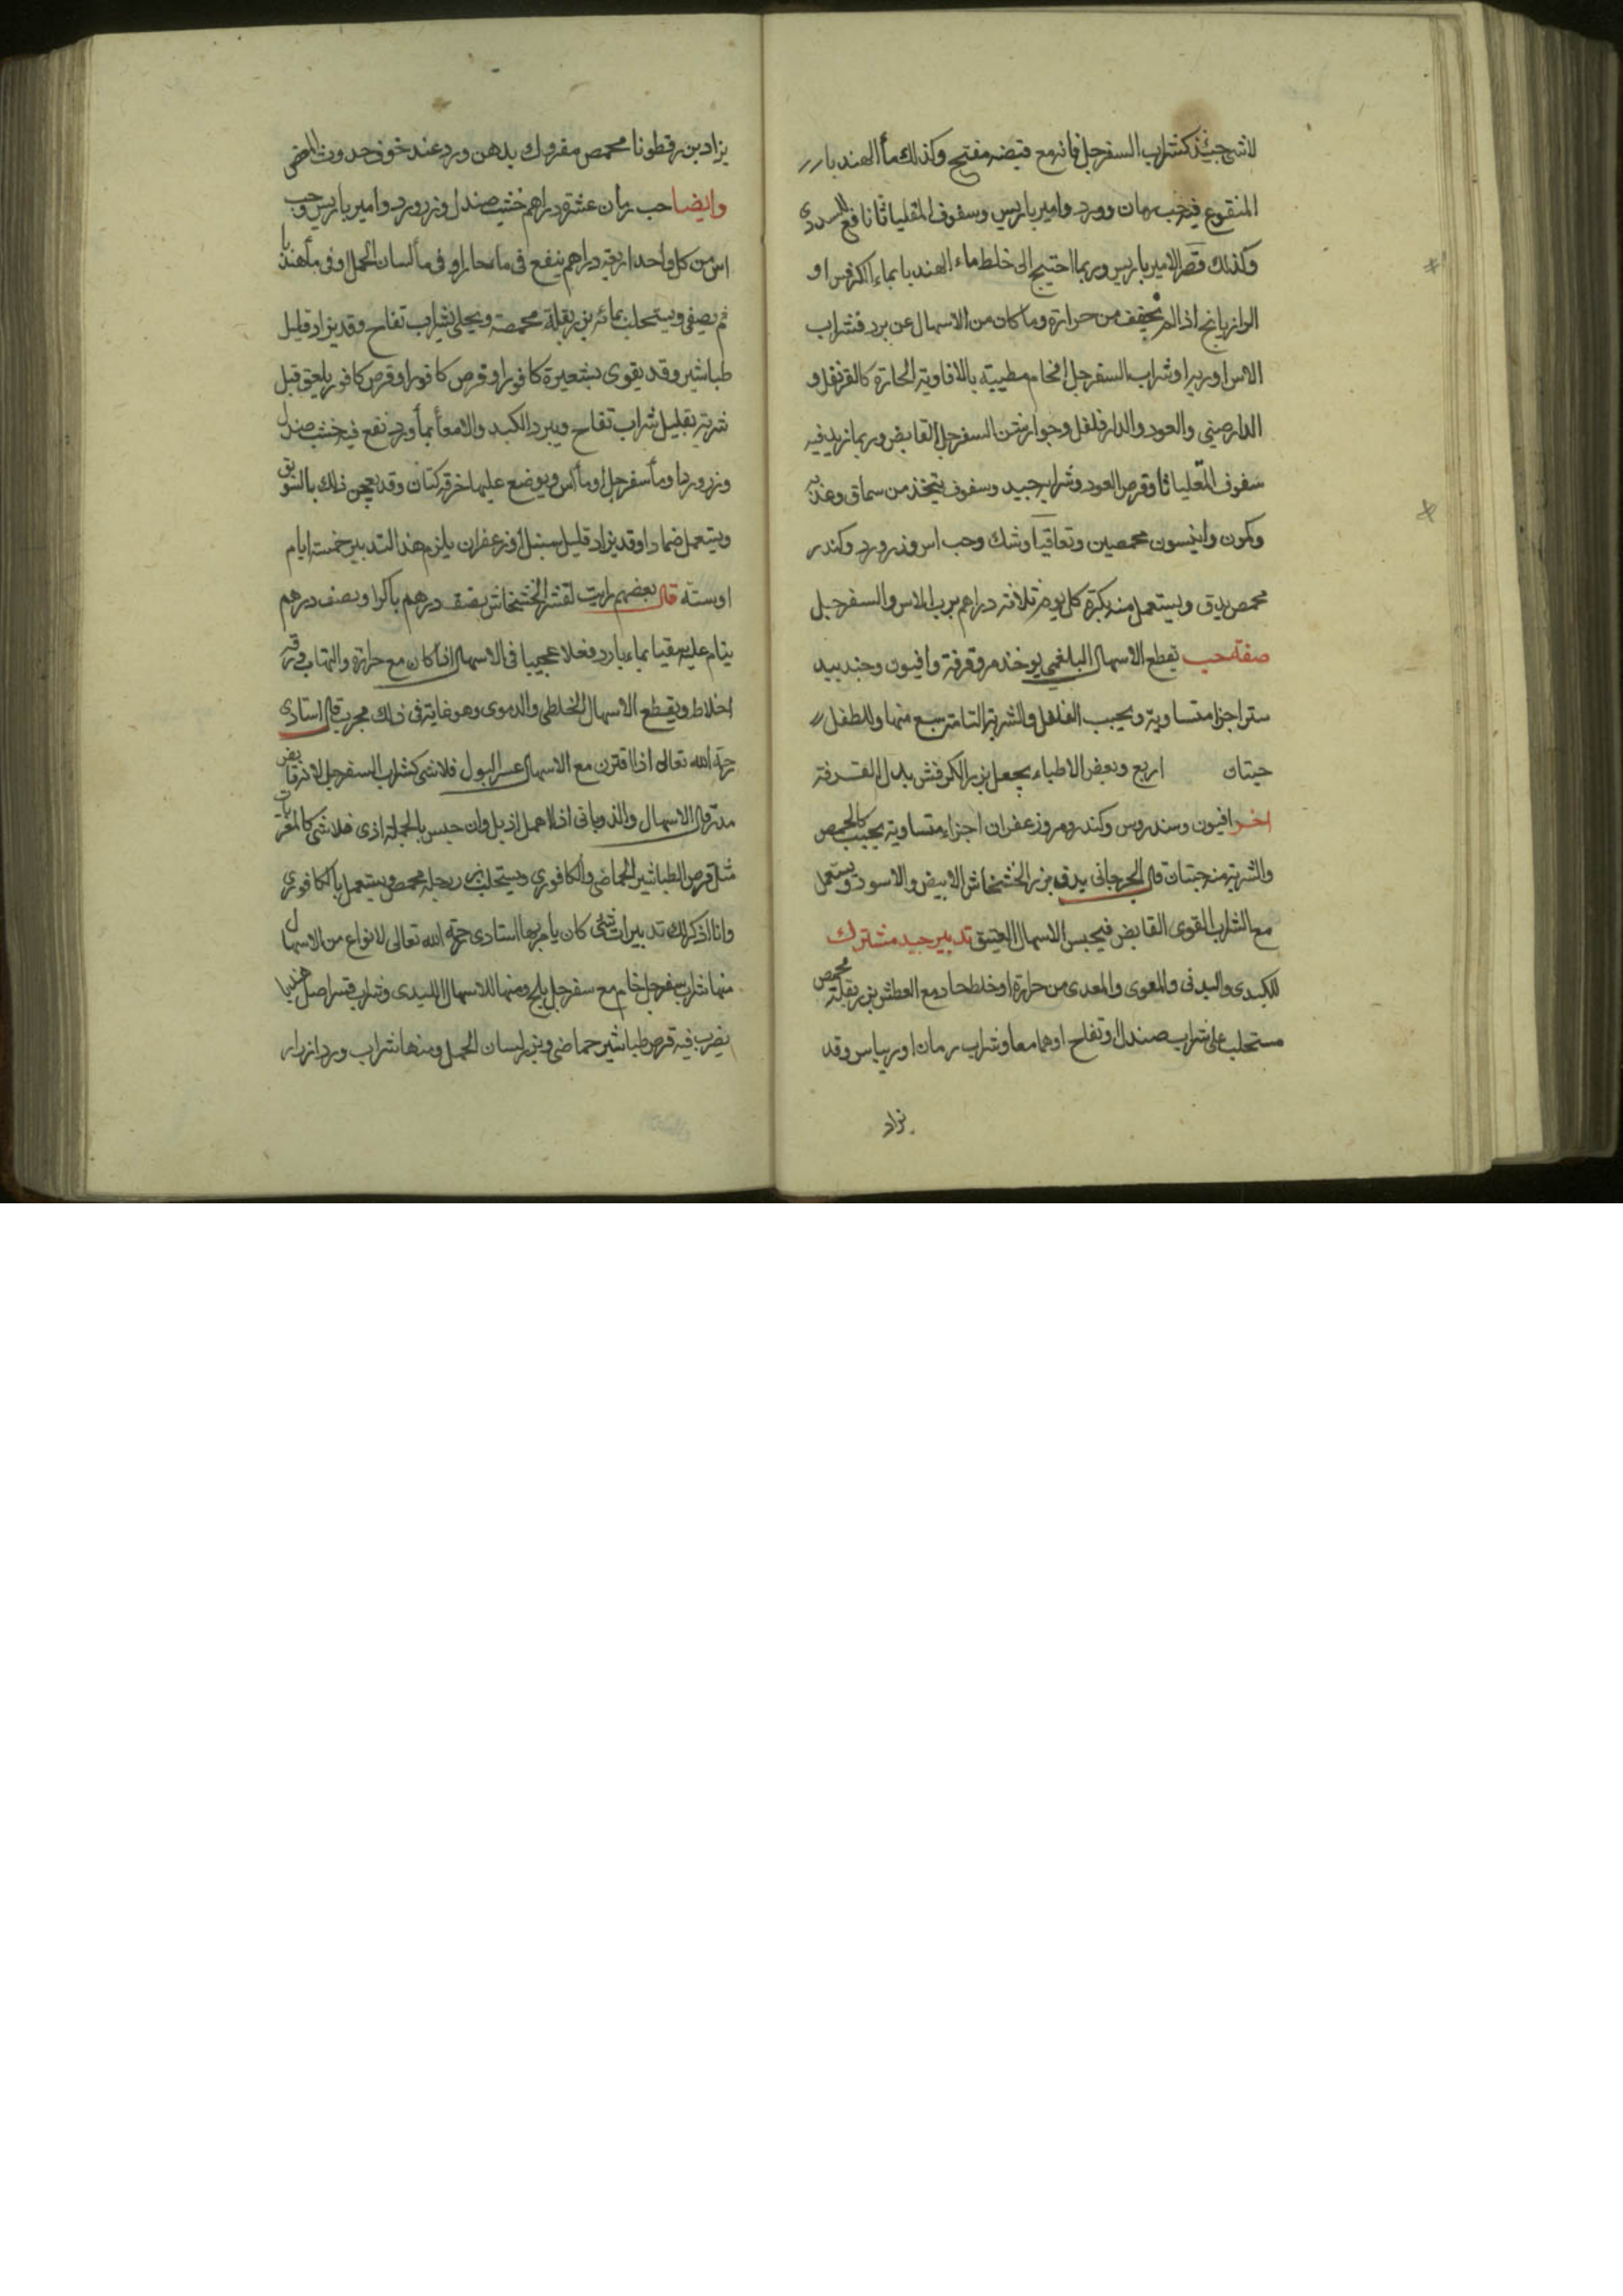 لاشى حينئذ كشراب السفرجل فانه مع قبضه مفتح وكذلك مأ الهندبا
المنقوع فيه حب رمان وورد وامير باريس وسفوف المقلياثا نافع للسددى
وكذلك قرص الامير باريس وربما احتيج الى خلط ماء الهندبا بماء الكرفس او
الرازيانج اذا لم نخف من حرارة وما كان من الاسهال عن برد فشراب
الاس او ربه او شراب السفرجل الخام مطيبة بالافاويه الحارة كالقرنفل و
الدارصينى والعود والدارفلفل وجوارشن السفرجل القابض وربما زيد فيه
سفوف المقلياثا وقرص العود وشراب جيد وسفوف يتخذ من سماق
وكمون وانيسون محمصين وشك وحب اس وزر ورد وكندر
محمص يدق ويستعمل منه بكرة كل يوم ثلاثه دراهم برب الاس والسفرجل
صفة حب يقطع الاسهال البلغمى يوخذ مر وقرفة وافيون وجندبيد
ستر اجزا متساوية ويحبب الفلفل والشربة التامة سبع منها وللطفل
حبتان اربع وبعض الاطباء يجعل بزر الكرفس بدل القرفة
اخر افيون وسندروس وكندر ومر وزعفران اجزاء متساوية يحبب كالحمص
والشربة منه حبتان قال الجرجانى يدق بزر الخشخاش الابيض والاسود ويستعمل
مع الشراب القوى القابض فيحبس الاسهال العتيق تدبير جيد مشترك
للكبدى والبدنى والمعوى والمعدى من حرارة او خلط حاد مع العطش بزر بقلة محمص
مستحلب على شراب صندل وتفاح او هما معا وشراب رمان او ريباس وقد
يزاد
يزاد بزر قطونا محمص مفروك بدهن ورد عند خوف حدوث
وايضا حب رمان عشرة دراهم خشب صندل وزر ورد وامير باريس وحب
اس من كل واحد اربعه دراهم ينقع فى ماء حار او فى مأ لسان الحمل او فى مأ هندبا
ثم يصفى ويستحلب بمائه بزر بقلة محمصة ويحلى بشراب تفاح وقد يزاد قليل
طباشير وقد يقوى بشعيرة كافور او قرص كافور او قرص كافور يلعق قبل
شربه بقليل شراب تفاح ويبرد الكبد والامعأ بمأ ورد نقع فيه خشب صندل
وزر ورد او مأ سفرجل او مأ اس ويوضع عليها خرقة كتان وقد يعجن ذلك بالسويق
ويستعمل ضمادا وقد يزاد قليل سنبل او زعفران يلزم هذا التدبير خمسة ايام
اوستة قال بعضهم رايت لقشر الخشخاش نصف درهم باكرا ونصف درهم
ينام عليه مقيا بماء بارد فعلا عجيبا فى الاسهال اذا كان مع حرارة والتهاب ورقة
اخلاط ويقطع الاسهال الخلطى والدموى وهو غاية فى ذلك مجرب قال استادى
رحمه الله تعالى اذا اقترن مع الاسهال عسر البول فلا شى كشراب السفرجل لانه قابض
مدر قال الاسهال والذوبانى اذا اهمل اذبل وان حبس بالجملة اذى فلا شى كالمغريات
مثل قرص الطباشير الحماضى والكافورى ويستحلب بزر رجله محمص ويستعمل بالكافورى
وانا اذكر لك تدبيرات شتى كان يامر بها استادى رحمه الله تعالى لانواع من الاسهال
منها شراب سفرجل خام مع سفرجل بلح ومنها للاسهال الكبدى وشراب قشر اصل هندبا
يضرب فيه قرص طباشير حماضى وبزر لسان الحمل ومنها شراب ورد